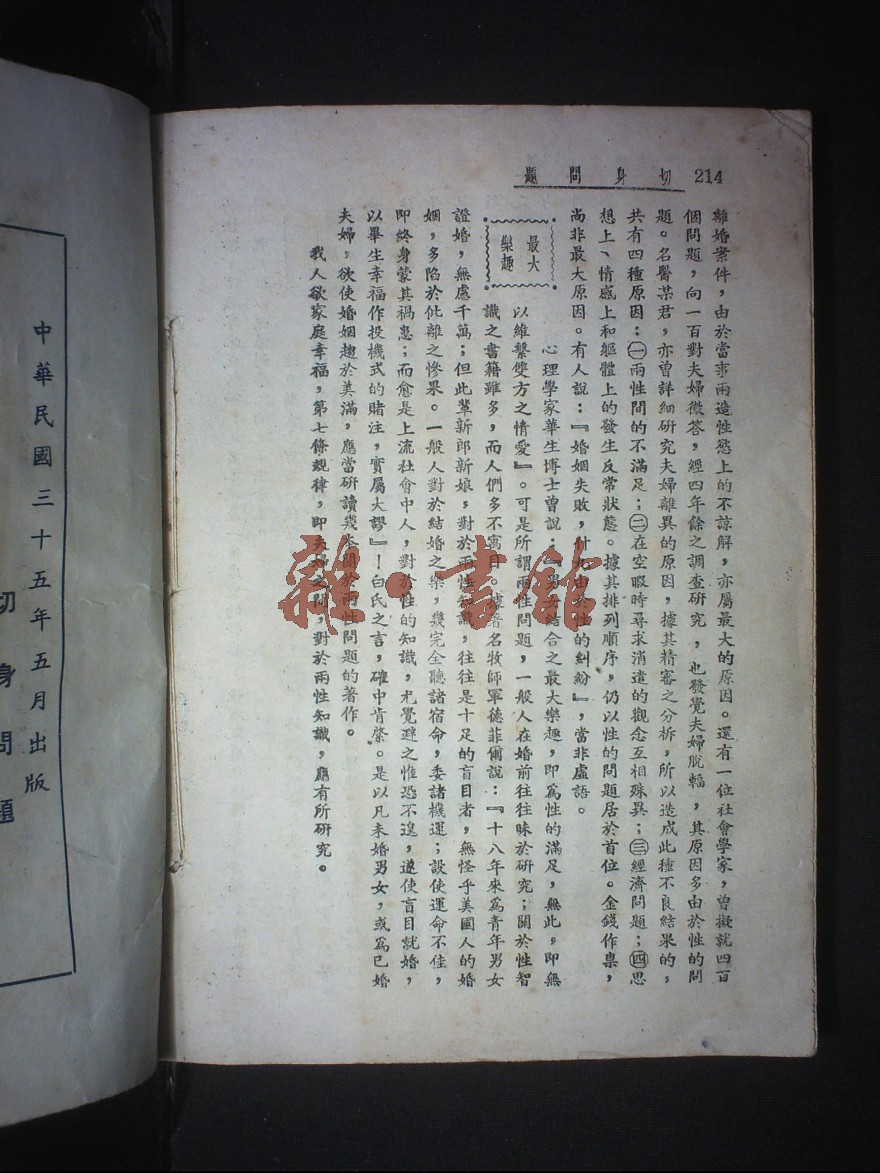 214 切身問題
離婚案件，由於當事兩造性慾上的不諒解，亦屬最大的原因。還有一位社會學家，曾擬就四百
個問題，向一百對夫婦徵答，經四年餘之調查研究，也發覺夫婦脫輻，其原因多由於性的問
題。名醫某君，亦曾詳細研究夫婦離異的原因，據其精審之分析，所以造成此種不良結果的，
共有四種原因：㊀兩性間的不滿足；㊁在空暇時尋求消遣的觀念互相殊異；㊂經濟問題；㊃思
想上、情感上和軀體上的發生反常狀態。據其排列順序，仍以性的問題居於首位。金錢作祟，
尚非最大原因。有人說：『婚姻失敗，什九由於性的糾紛』，當非虛語。
最大樂趣
心理學家華生博士曾說：『男女結合之最大樂趣，即爲性的滿足，無此，即無
以維繫雙方之情愛』。可是所謂兩性問題，一般人在婚前往往昧於研究；關於性智
識之書籍雖多，而人們多不寓目。據著名牧師軍德菲爾說：『十八年來爲青年男女
證婚，無慮千萬；但此輩新郎新娘，對於兩性知識，往往是十足的盲目者，無怪乎美國人的婚
姻，多陷於仳離之慘果。一般人對於結婚之樂，幾完全聽諸宿命，委諸機運；設使運命不佳，
即終身蒙其禍患；而愈是上流社會中人，對於性的知識，尤覺避之惟恐不遑，遂使盲目就婚，
以畢生幸福作投機式的賭注，實屬大謬』！白氏之言，確中肯綮。是以凡未婚男女，或爲已婚
夫婦，欲使婚姻趨於美滿，應當研讀幾本關於兩性問題的著作。
我人欲家庭幸福，第七條規律，即夫婦之間，對於兩性知識，應有所研究。
中華民國三十五年五月出版
切身問題
雜·書館